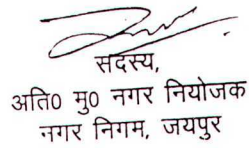 सदस्य,
अति० मु० नगर नियोजक
नगर निगम, जयपुर